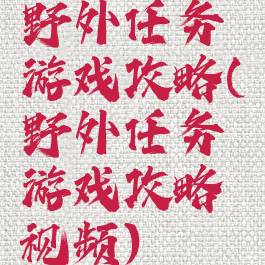 野外任务
游戏攻略(
野外任务
游戏攻略
视频)